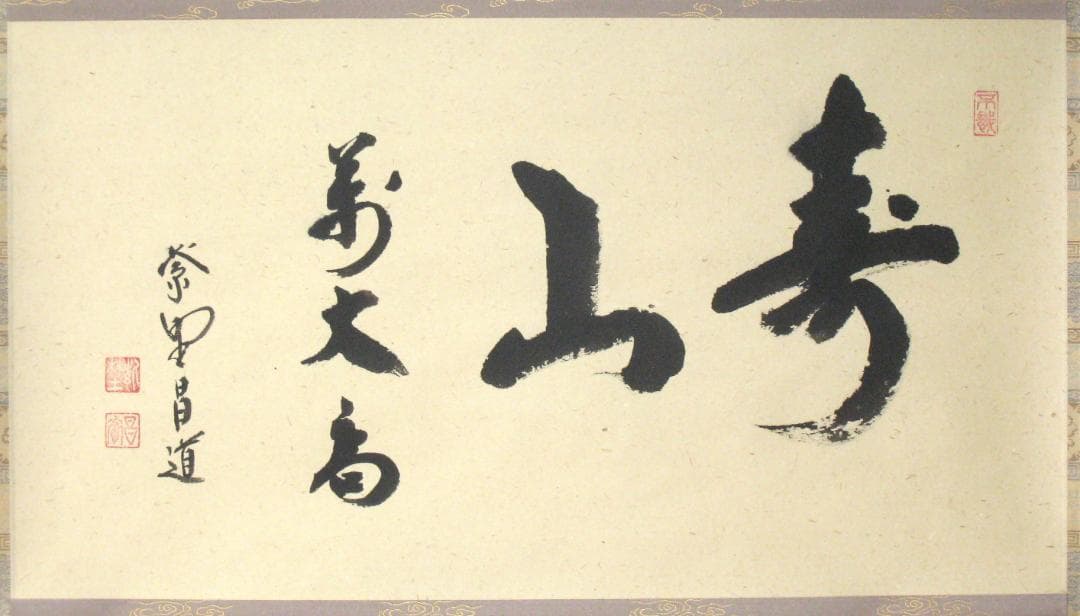 寿
山
萬丈高
紫野昌道